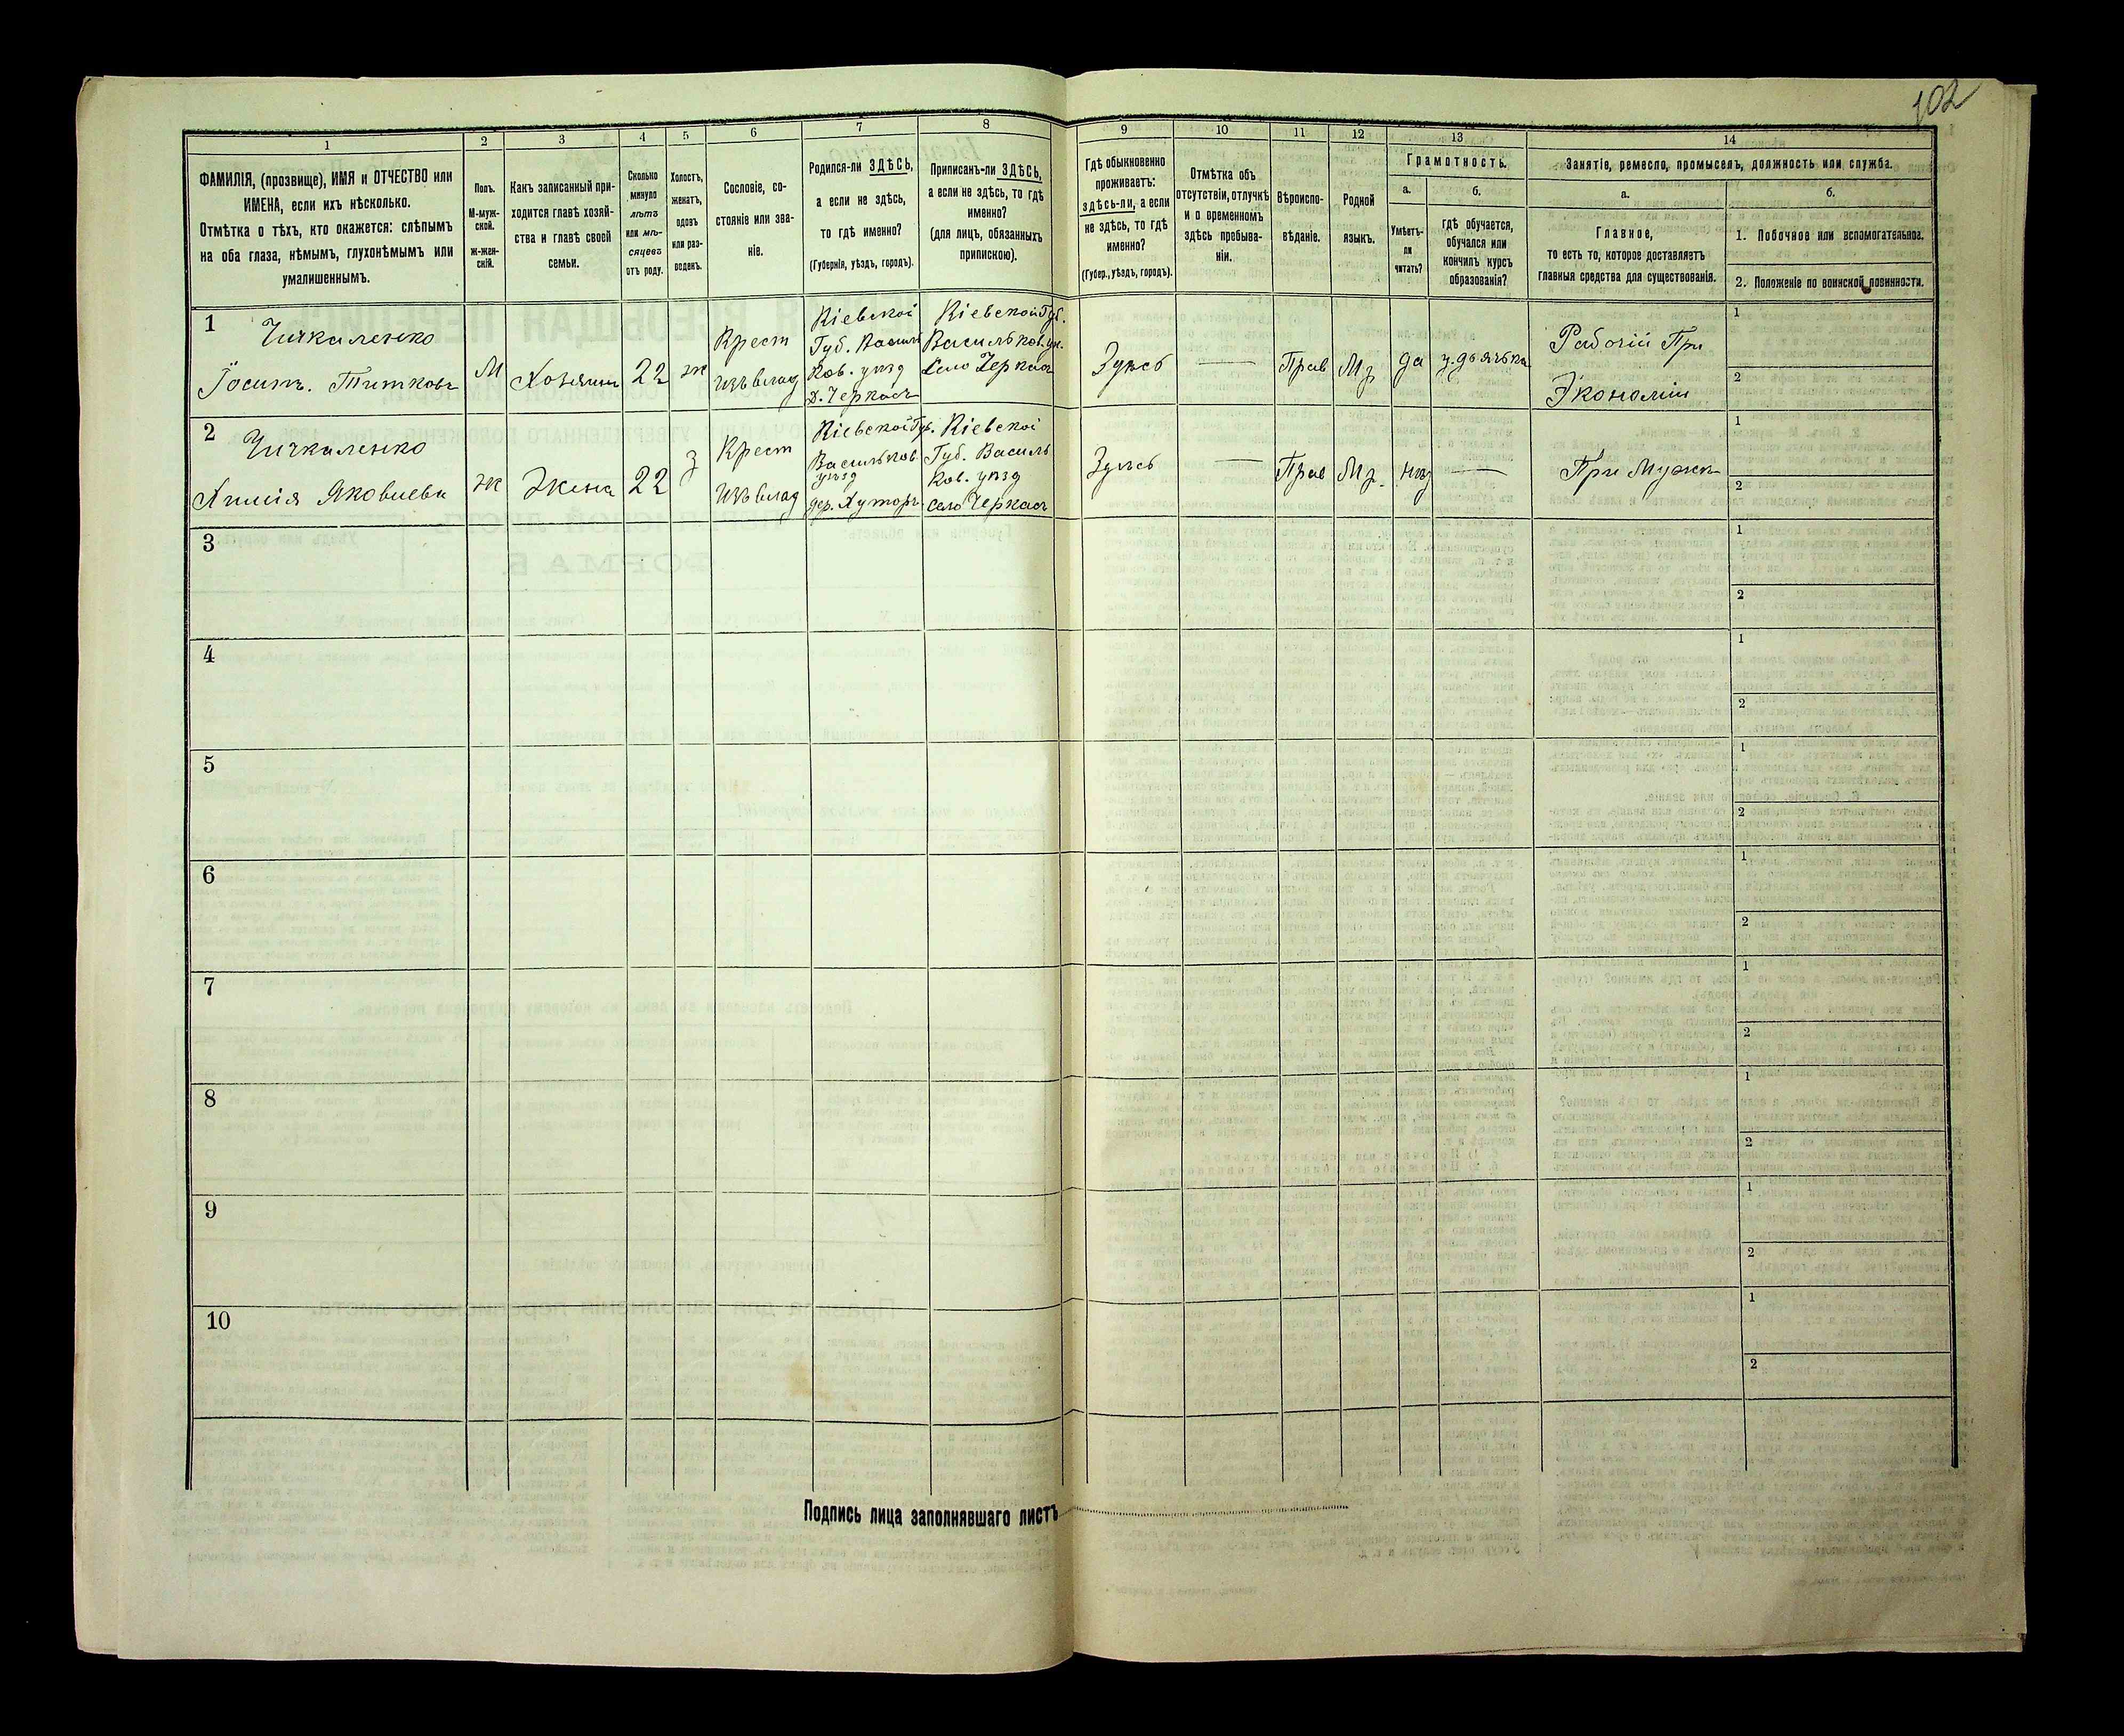 102
1
2
3
4
5
6
7
8
9
10
11
12
13
14
ФАМИЛІЯ, (прозвище), ИМЯ и ОТЧЕСТВО или
ИМЕНА, если ихъ нѣсколько.
Отмѣтка о тѣхъ, кто окажется: слѣпымъ
на оба глаза, нѣмымъ, глухонѣмымъ или
умалишеннымъ.
Полъ.
М-муж-
ской.
ж-жен-
скій.
Какъ записанный при-
ходится главѣ хозяй-
ства и главѣ своей
семьи.
Сколько
минуло
лѣтъ
или мѣ-
сяцевъ
отъ роду.
Холостъ,
женатъ,
вдовъ
или раз-
веденъ.
Сословіе, со-
стояніе или зва-
ніе.
Родился-ли ЗДѢСЬ,
а если не здѣсь,
то гдѣ именно?
(Губернія, уѣздъ, городъ).
Приписанъ-ли ЗДѢСЬ,
а если не здѣсь, то гдѣ
именно?
(для лицъ, обязанныхъ
припискою).
Гдѣ обыкновенно
проживаетъ:
здѣсь-ли, а если
не здѣсь, то гдѣ
именно?
(Губер., уѣздъ, городъ).
Отмѣтка объ
отсутствіи, отлучкѣ
и о временномъ
здѣсь пребыва-
ніи.
Вѣроиспо-
вѣданіе.
Родной
языкъ.
Грамотность.
а.
Умѣетъ-
ли
читать?
б.
гдѣ обучается,
обучался или
кончилъ курсъ
образованія?
Занятіе, ремесло, промыселъ, должность или служба.
а.
Главное,
то есть то, которое доставляетъ
главныя средства для существованія.
б.
1. Побочное или вспомогательное.
2. Положеніе по воинской повинности.
1
Чичкаленко
М
Хозяинъ
22
ж
Крест
изъ влад
Кіевской
Губ. Василь
ков. уѣзд
д. Черкасъ
Кіевской Губ.
Васильков. уѣ.
Село Черкасъ
Здѣсь
—
Прав
Мр
да
у дьячька
Рабочій При
Экономіи
1
2
2
Чичкаленко
Яковлева
ж
Жена
22
з
Крест
изъ влад
Кіевской Губ.
Васильков
уѣзд
дер. Хуторъ
Кіевской
Губ. Василь
ков. уѣзд
село Черкасъ
Здѣсь
—
Прав
Мр.
—
При Мужѣ
1
2
3
1
2
4
1
2
5
1
2
6
1
2
7
1
2
8
1
2
9
1
2
10
1
2
Подпись лица заполнявшаго листъ